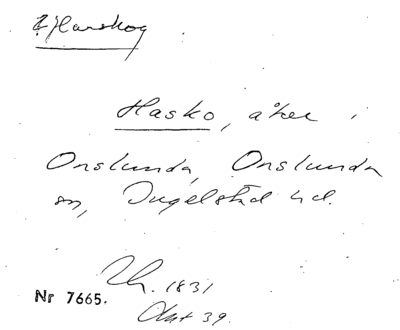 Harskog
Hasko, åker i
Onslunda, Onslunda
sn, Ingelstad hd.
1831
Nr 7665.
Akt 39.